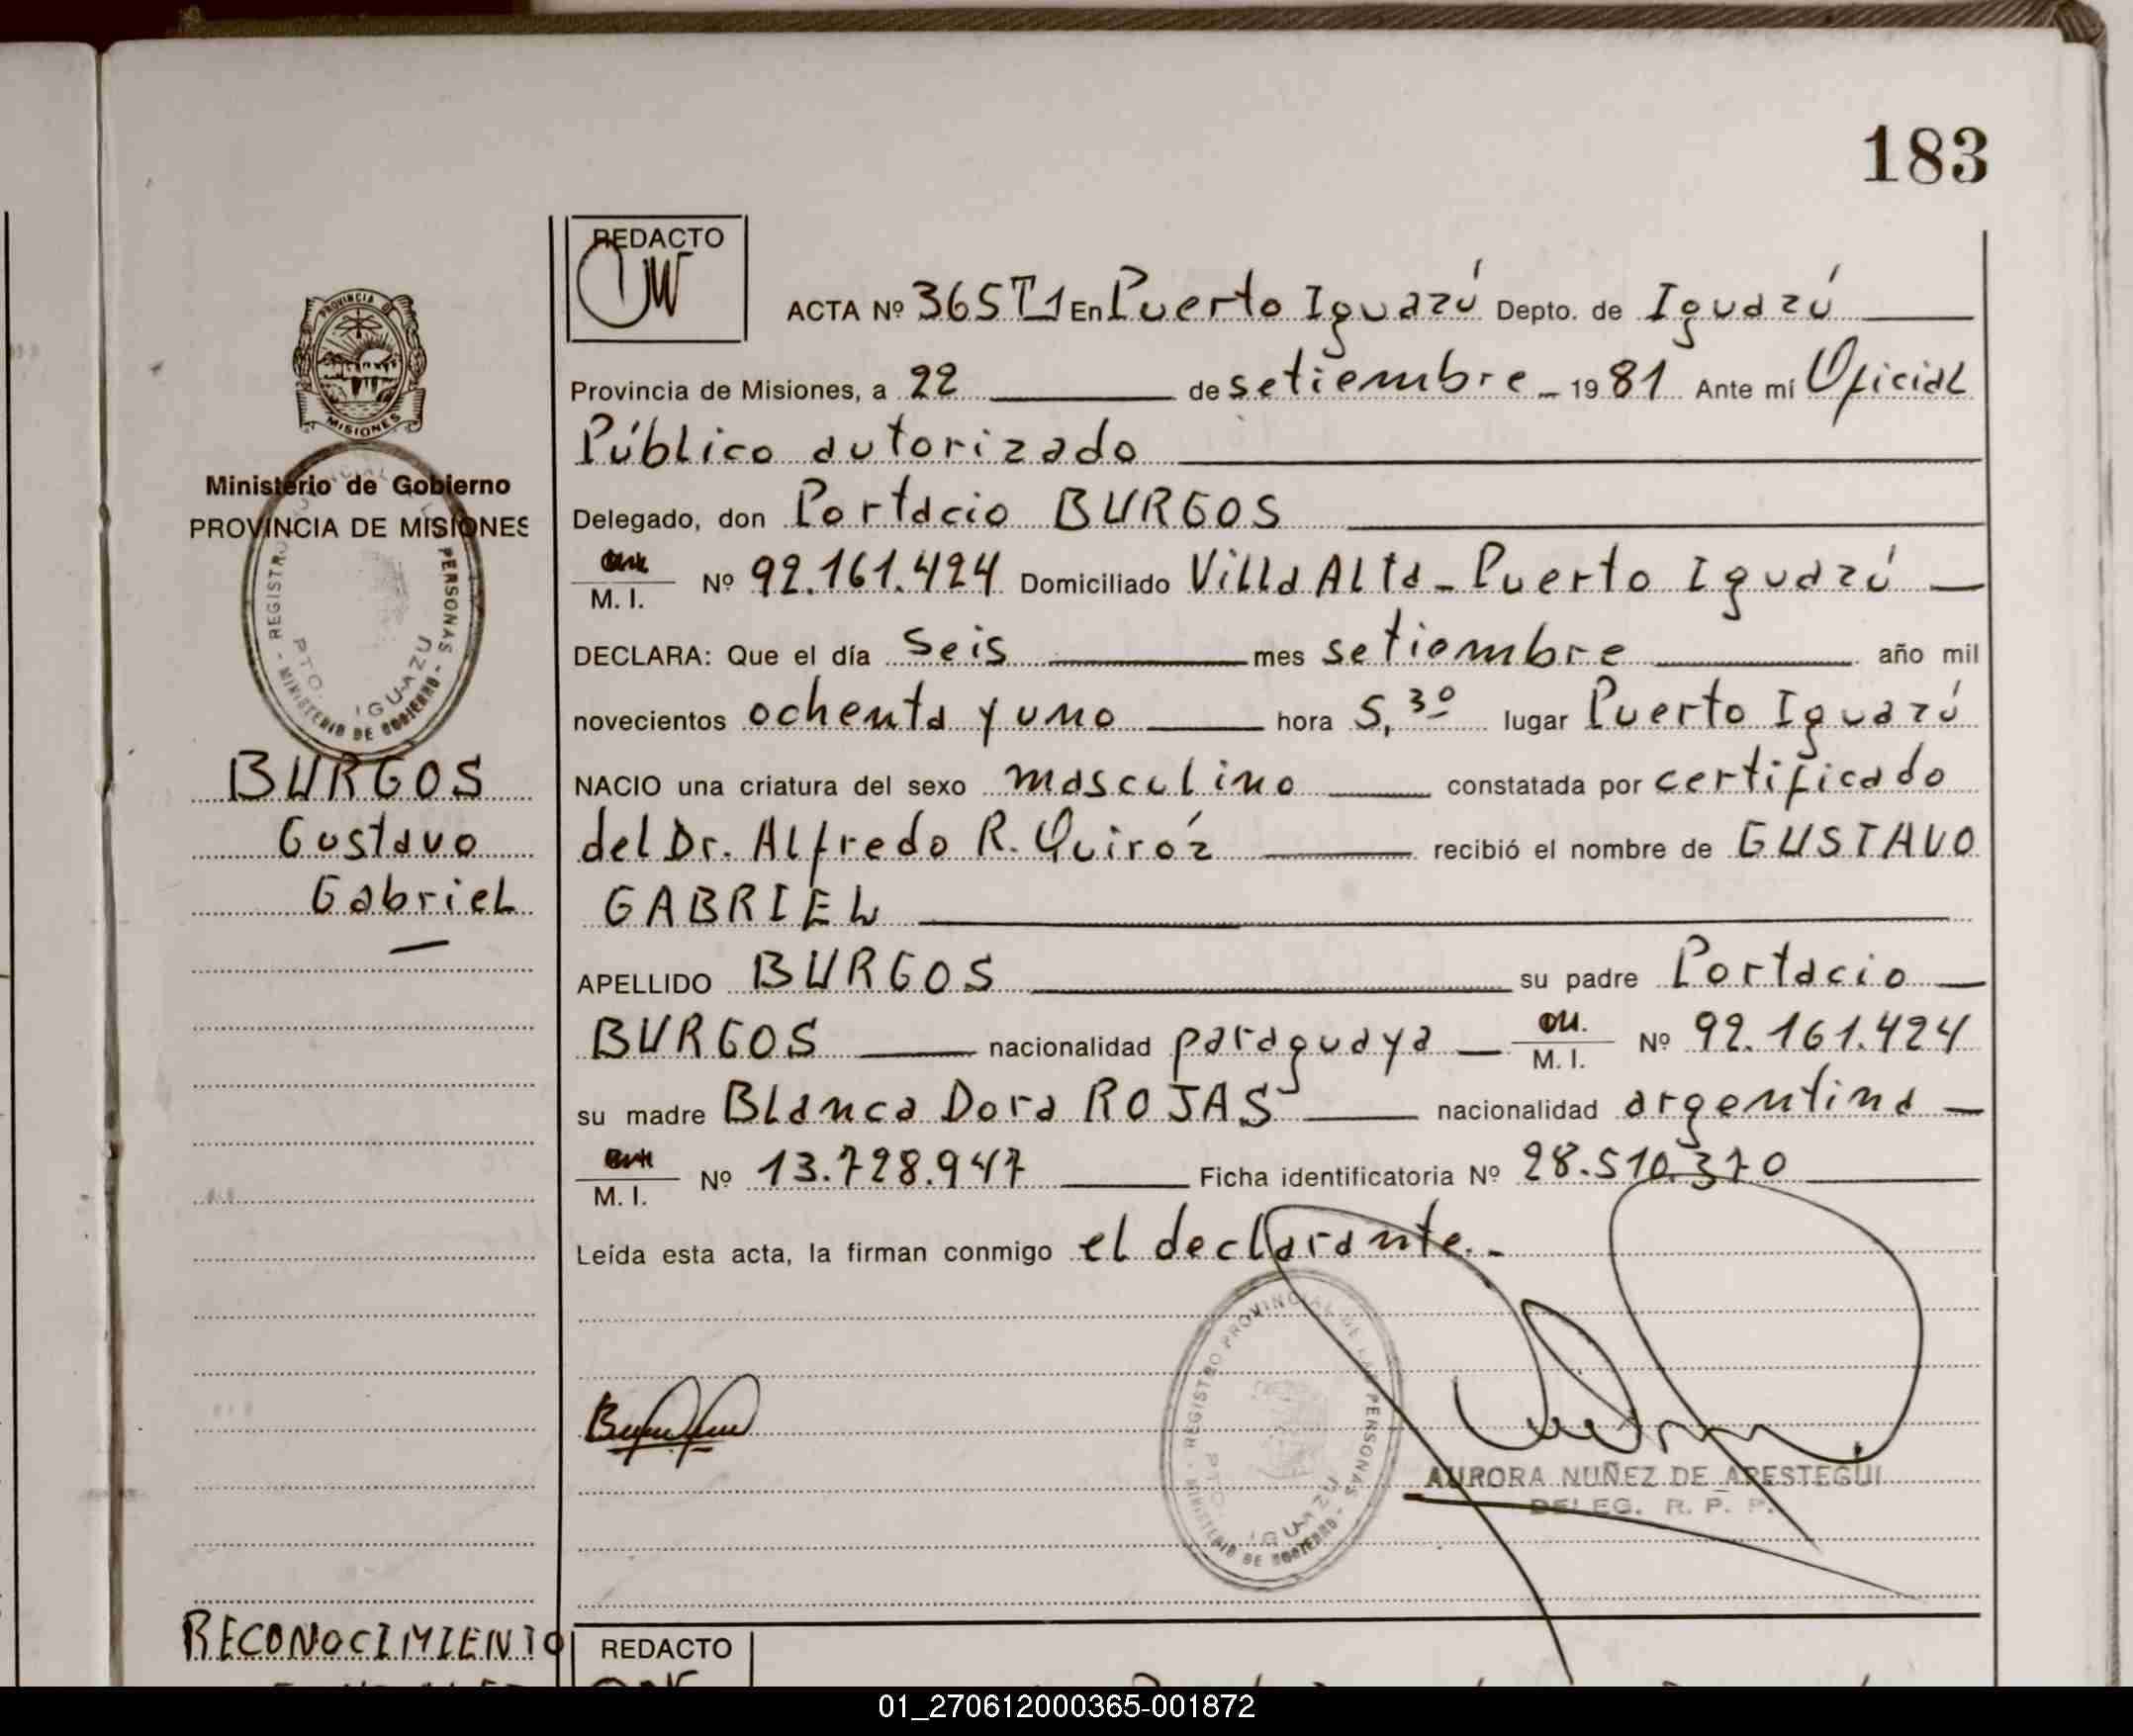 183
REDACTO
ACTA Nº 365 T1 En Puerto Iguazú Depto. de Iguazú
Provincia de Misiones, a 22 de setiembre 1981 Ante mí Oficial
Público autorizado
Delegado, don Portacio BURGOS
M. I. Nº 92.161.424 Domiciliado Villa Alta - Puerto Iguazú
DECLARA: Que el día seis mes setiembre año mil
novecientos ochenta y uno hora 5,30 lugar Puerto Iguazú
NACIO una criatura del sexo masculino constatada por certificado
del Dr. Alfredo R. Quiróz recibió el nombre de GUSTAVO
GABRIEL
APELLIDO BURGOS su padre Portacio
BURGOS nacionalidad paraguaya M. I. Nº 92.161.424
su madre Blanca Dora ROJAS nacionalidad argentina
M. I. Nº 13.728.947 Ficha identificatoria Nº 28.510.370
Leída esta acta, la firman conmigo el declarante.-
PROVINCIA DE
MISIONES
Ministerio de Gobierno
PROVINCIA DE MISIONES
REGISTRO PERSONAS - MINISTERIO DE GOBIERNO -
PTO. IGUAZU
BURGOS
Gustavo
Gabriel
REGISTRO PROVINCIAL DE LAS PERSONAS - MINISTERIO DE GOBIERNO -
PTO. IGUAZU
AURORA NUÑEZ DE APESTEGUI
DELEG. R. P. P.
RECONOCIMIENTO
REDACTO
01_270612000365-001872